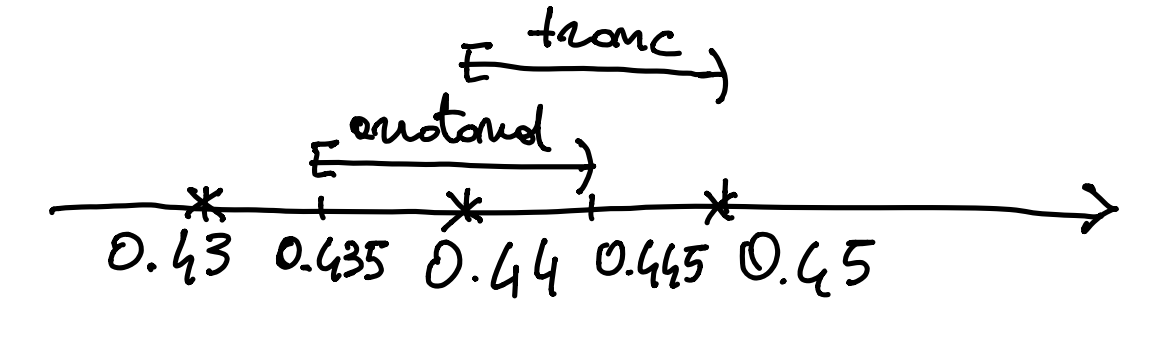 tronc
arrotond
0.43 0.435 0.44 0.445 0.45